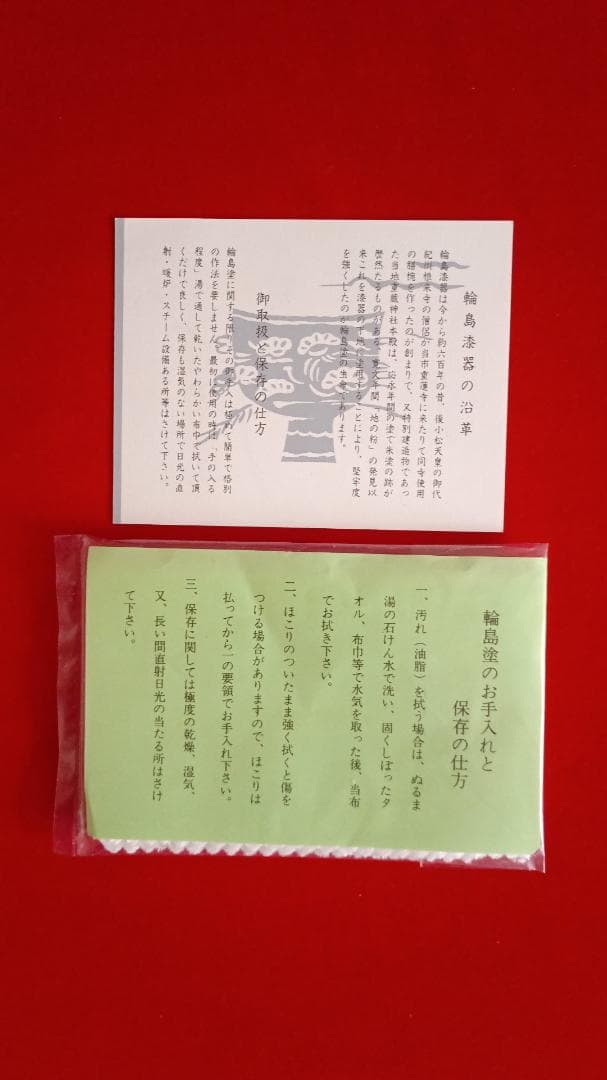 輪島漆器の沿革
輪島漆器は今から約六百年の昔、後小松天皇の御代
紀州根来寺の僧侶が当市重蓮寺に来たりて同寺使用
の膳椀を作ったのが創まりで、又特別建造物であっ
た当地重蔵神社本殿は、応永年間の塗で朱塗の跡が
歴然たるものがある。寛文年間「地の粉」の発見以
来これを漆器の下地に塗用することにより、堅牢度
を強くしたのが輪島塗の生命であります。
御取扱と保存の仕方
輪島塗に関する限りその御手入は極めて簡単で格別
の作法を要しません。最初に使用の時は「手の入る
程度」湯で通して乾いたやわらかい布巾で拭いて頂
くだけで良しく、保存も湿気のない場所で日光の直
射・煖炉・スチーム設備ある所等はさけて下さい。
輪島塗のお手入れと
保存の仕方
一、汚れ(油脂)を拭う場合は、ぬるま
湯の石けん水で洗い、固くしぼったタ
オル、布巾等で水気を取った後、当布
でお拭き下さい。
二、ほこりのついたまま強く拭くと傷を
つける場合がありますので、ほこりは
払ってから一の要領でお手入れ下さい。
三、保存に関しては極度の乾燥、湿気、
又、長い間直射日光の当たる所はさけ
て下さい。